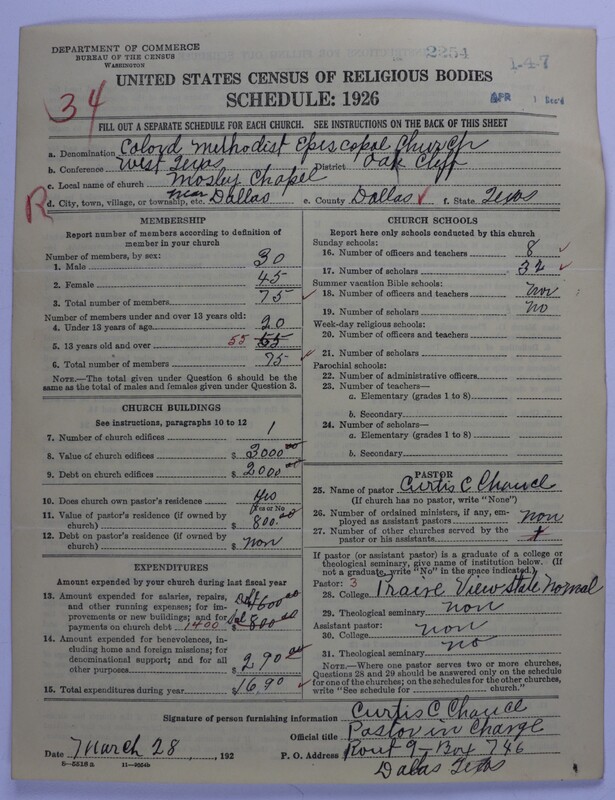 DEPARTMENT OF COMMERCE
BUREAU OF THE CENSUS
WASHINGTON
2254
1-4-7
34
UNITED STATES CENSUS OF RELIGIOUS BODIES
SCHEDULE: 1926
APR 1 Rec'd
FILL OUT A SEPARATE SCHEDULE FOR EACH CHURCH. SEE INSTRUCTIONS ON THE BACK OF THIS SHEET
a. Denomination Colord Methodist Episcopal Church
b. Conference West Texas District Oak Cliff
c. Local name of church Mosley Chapel
R
d. City, town, village, or township, etc. near Dallas e. County Dallas ✓ f. State Texas
MEMBERSHIP
Report number of members according to definition of member in your church
Number of members, by sex:
1. Male 30
2. Female 45
3. Total number of members 75 ✓
Number of members under and over 13 years old:
4. Under 13 years of age 20
5. 13 years old and over 55 65
6. Total number of members 75 ✓
NOTE.—The total given under Question 6 should be the
same as the total of males and females given under Question 3.
CHURCH BUILDINGS
See instructions, paragraphs 10 to 12
7. Number of church edifices 1
8. Value of church edifices $ 3000.00
9. Debt on church edifices $ 2000.00
10. Does church own pastor's residence
(Yes or No)
11. Value of pastor's residence (if owned by
church) $ 800.00
12. Debt on pastor's residence (if owned by
church) $ non
EXPENDITURES
Amount expended by your church during last fiscal year
13. Amount expended for salaries, repairs,
and other running expenses; for im-
provements on new buildings; and for
payments on church debt 1400 $ 600.00 800.00
14. Amount expended for benevolences, in-
cluding home and foreign missions; for
denominational support; and for all
other purposes $ 290.00
15. Total expenditures during year $ 16,90 ✓
CHURCH SCHOOLS
Report here only schools conducted by this church
Sunday schools:
16. Number of officers and teachers 8 ✓
17. Number of scholars 32 ✓
Summer vacation Bible schools:
18. Number of officers and teachers non
19. Number of scholars no
Week-day religious schools:
20. Number of officers and teachers
21. Number of scholars
Parochial schools:
22. Number of administrative officers
23. Number of teachers—
a. Elementary (grades 1 to 8)
b. Secondary
24. Number of scholars—
a. Elementary (grades 1 to 8)
b. Secondary
PASTOR
25. Name of pastor Curtis C Chancl
(If church has no pastor, write "None")
26. Number of ordained ministers, if any, em-
ployed as assistant pastors non
27. Number of other churches served by the
pastor or his assistants
If pastor (or assistant pastor) is a graduate of a college or
theological seminary, give name of institution below. (If
not a graduate, write "No" in the space indicated.)
Pastor: 3
28. College Praire View State Normal
29. Theological seminary non
Assistant pastor:
30. College non
31. Theological seminary no
NOTE.—Where one pastor serves two or more churches,
Questions 28 and 29 should be answered only on the schedule
for one of the churches; on the schedules for the other churches,
write "See schedule for church."
Signature of person furnishing information Curtis C Chancl
Official title Pastor in Charge
Date March 28, 192 P. O. Address Rout 9 - Box 746
Dalas Texas
8—5518a 11—9554b